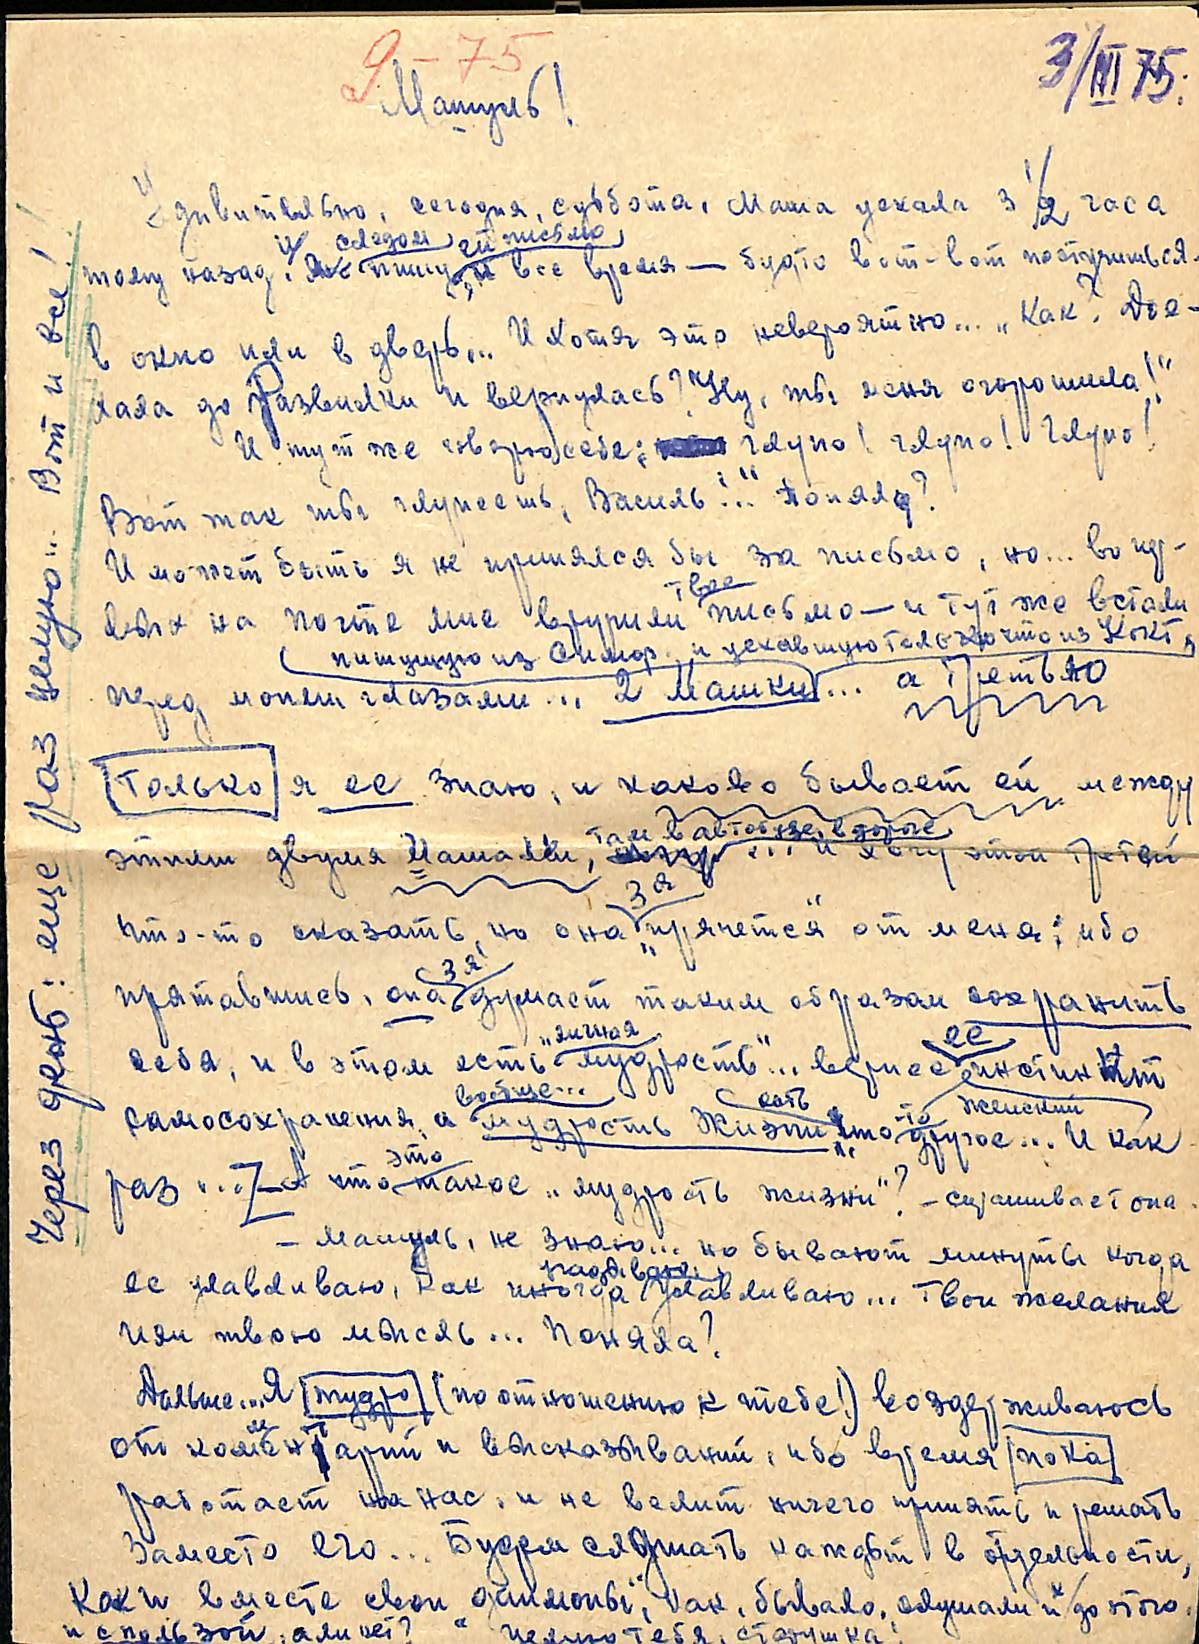 9-75
3/III 75.
Машуль!
Удивительно, сегодня, суббота, Маша уехала 3 1/2 часа
и следом ей письмо
тому назад, пишу, и все время — будто вот-вот постучишься
в окно или в дверь... И хотя это невероятно... „Как? Дое-
хала до Развилки и вернулась? Ну, ты меня огорошила!"
И тут же говорю себе: глупо! глупо! глупо!
Вот так ты глупеешь, Василь!.." Поняла?
И может быть я не принялся бы за письмо, но...
твое
на почте мне вручили письмо — и тут же встали
пишущую из Симф. и уехавшую только что из Кокт.
перед моими глазами... 2 Машки... а третью
только я ее знаю, и каково бывает ей между
там в автобусе, в дороге
этими двумя Машами, ... и хочу этой третей
3я
что-то сказать, но она „прячется" от меня; ибо
3я
прятавшись, она думает таким образом сохранить
„личная ее
себя, и в этом есть мудрость"... вернее инстинкт
вообще... есть то женский
самосохранения, а мудрость Жизни что другое... И как
это
раз ... А что такое „мудрость жизни"? – спрашивает она.
– Машуль, не знаю... но бывают минуты когда
ее улавливаю, как иногда улавливаю... твои желания
или твою мысль... Поняла?
Дальше... Я мудро (по отношению к тебе!) воздерживаюсь
от коментарий и высказываний, ибо время пока
работает на нас, и не велит ничего принять и решать
заместо его... Будем слушать каждый в отдельности,
как и вместе свои „даимоны", как, бывало, слушали их до этого,
и с пользой, али нет? целую тебя, старушка!
Через день: еще раз целую... Вот и все!